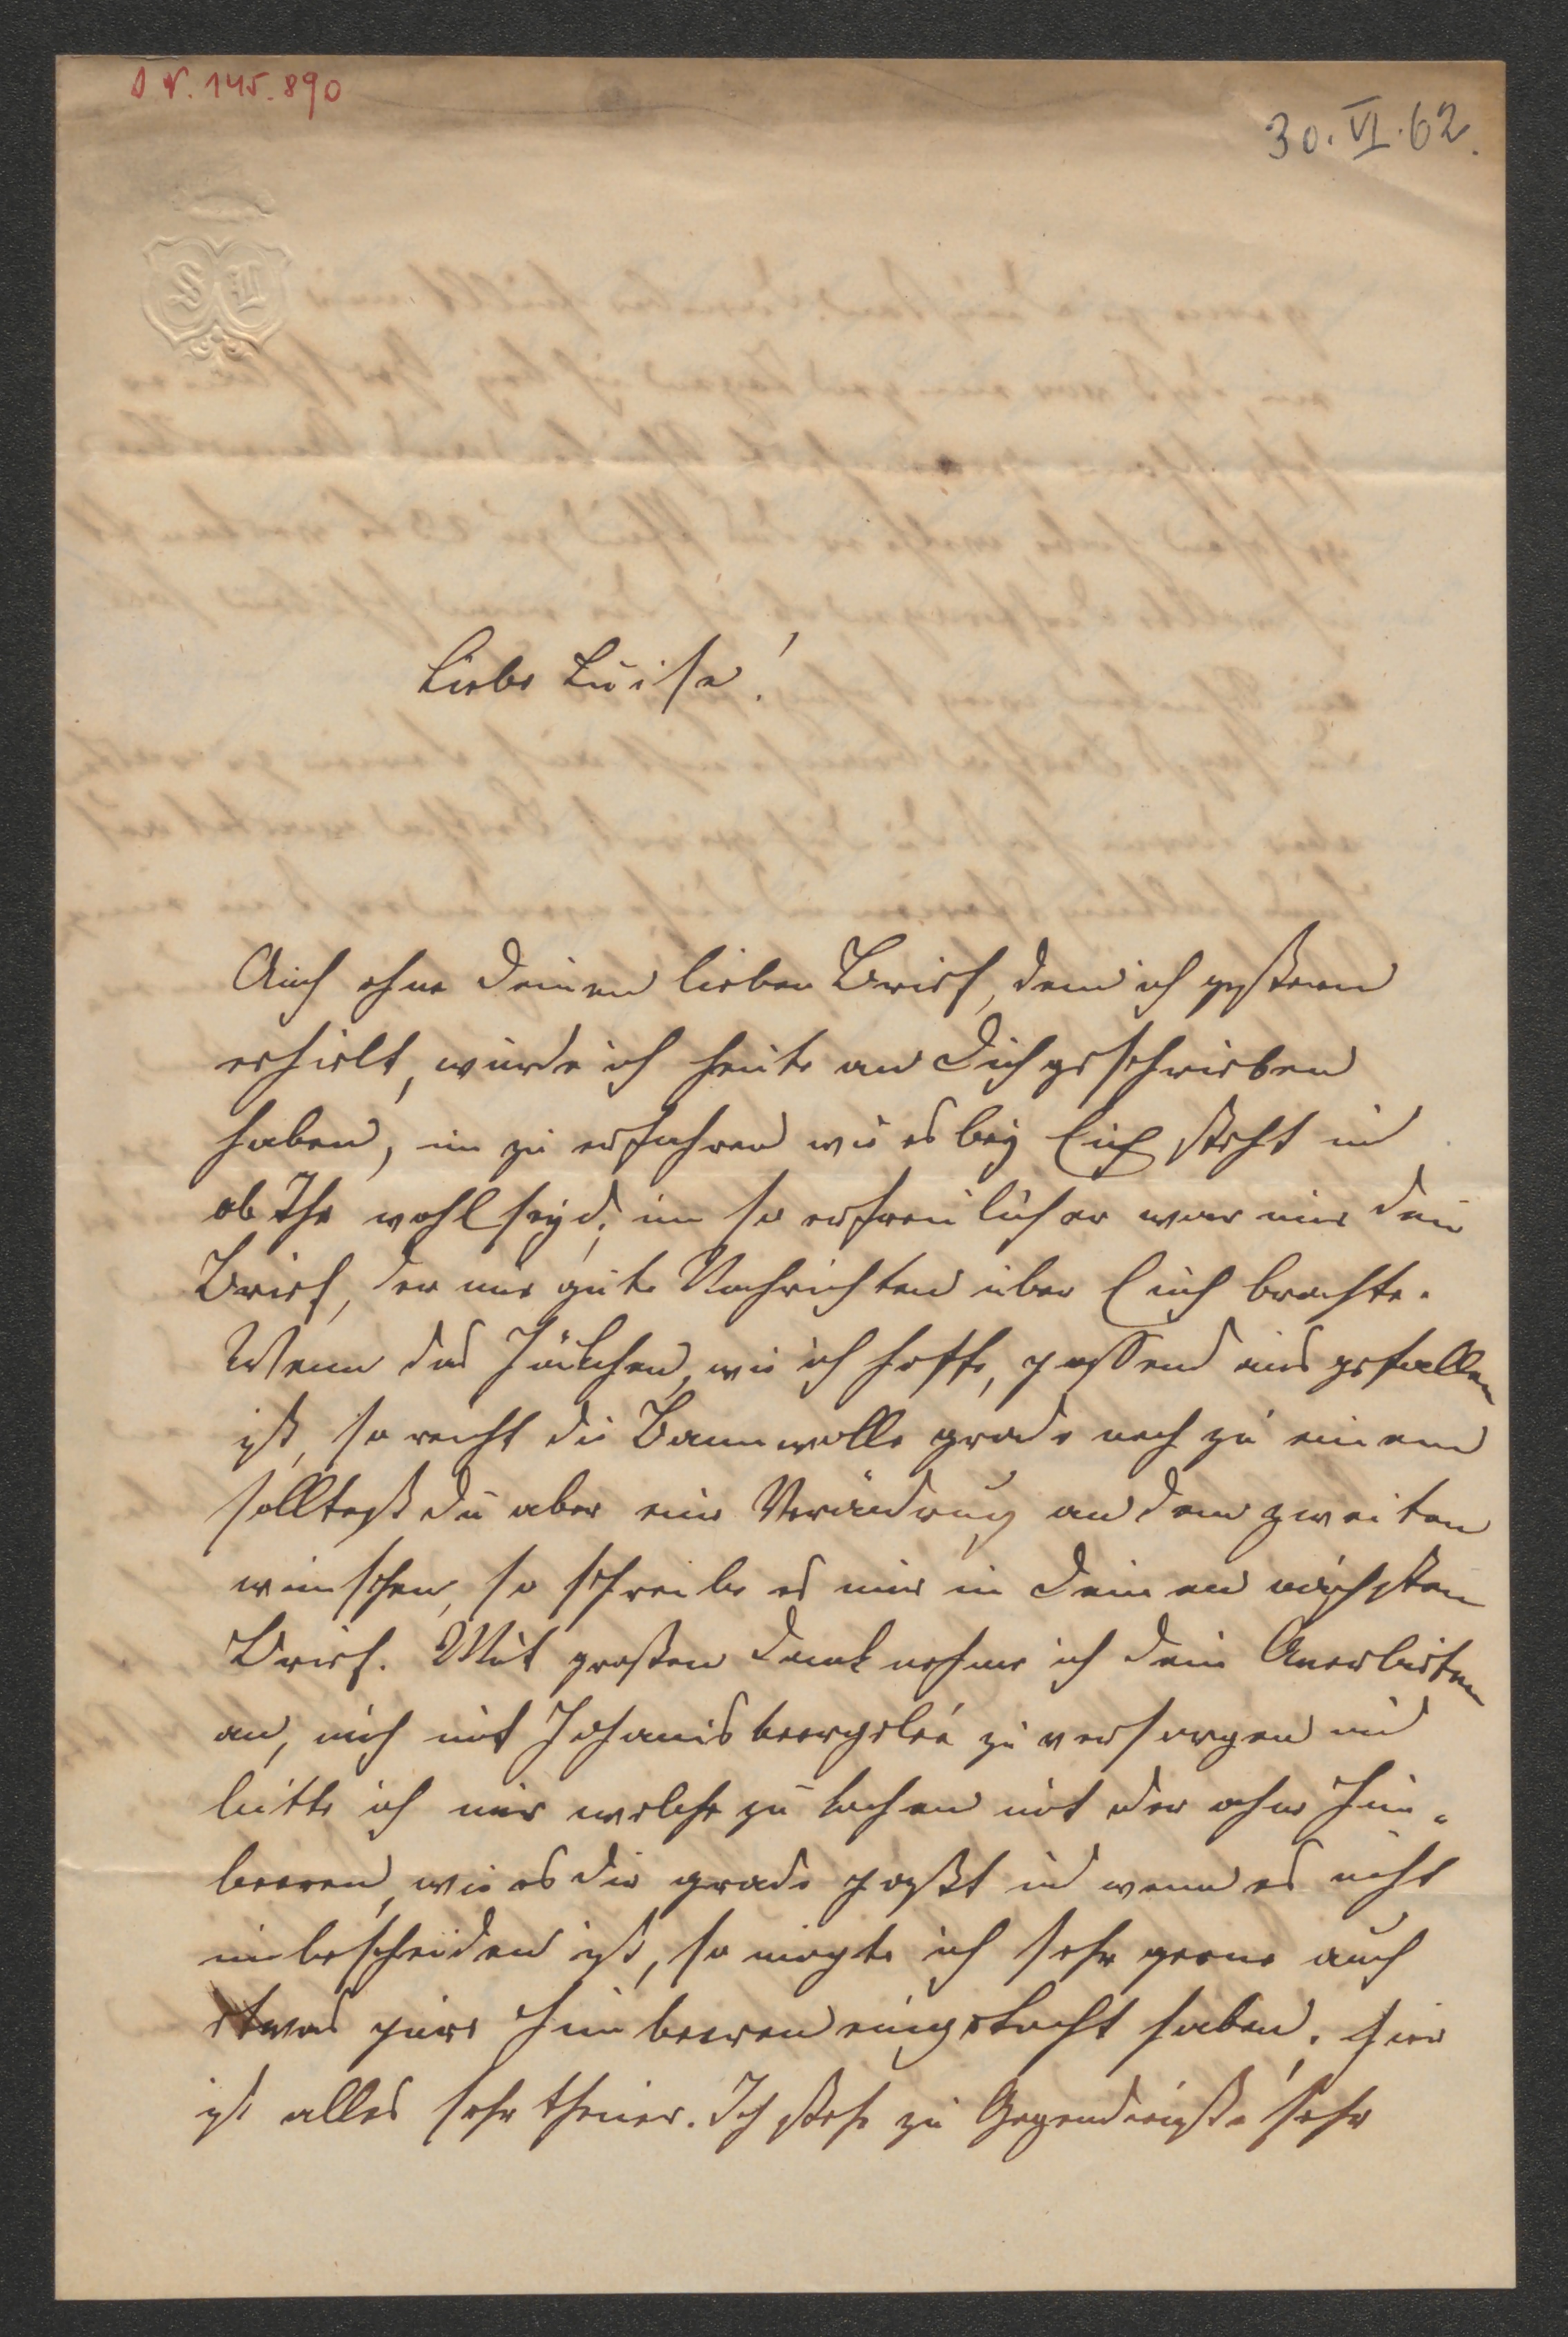 30. VI. 62.
S L
Liebe Luise!
Auch ohne deinen lieben Brief, den ich gestern
erhielt, würde ich heute an Dich geschrieben
haben, um zu erfahren wie es bey Euch steht und
ob Ihr wohl seyd; um so erfreulicher war mir dein
Brief, der mir gute Nachrichten über Euch brachte.
Wenn das Jäckchen, wie ich hoffe, passend ausgefallen
ist, so reicht die Baumwolle grade noch zu einem
solltest du aber eine Verändrung an dem zweiten
wünschen, so schreibe es mir in deinem nächsten
Brief. Mit großen Dank nehme ich dein Anerbieten
an, mich mit Johanisbeergelée zu versorgen und
bitte ich mir welche zu kochen mit oder ohne Him-
beeren, wie es dir grade paßt und wenn es nicht
unbescheiden ist, so mögte ich sehr gerne auch
etwas pure Himbeeren eingekocht haben. Hier
ist alles sehr theuer. Ich stehe zu Gegendienste sehr